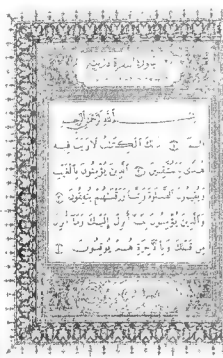 بسم الله الرحمن
الم ۝ ذلك الكتب لا ريب فيه
هدى للمتقين ۝ الذين يؤمنون بالغيب
ويقيمون الصلوة ومما رزقنهم ينفقون ۝
والذين يؤمنون بما أنزل إليك وما أنزل
من قبلك وبالآخرة هم يوقنون ۝